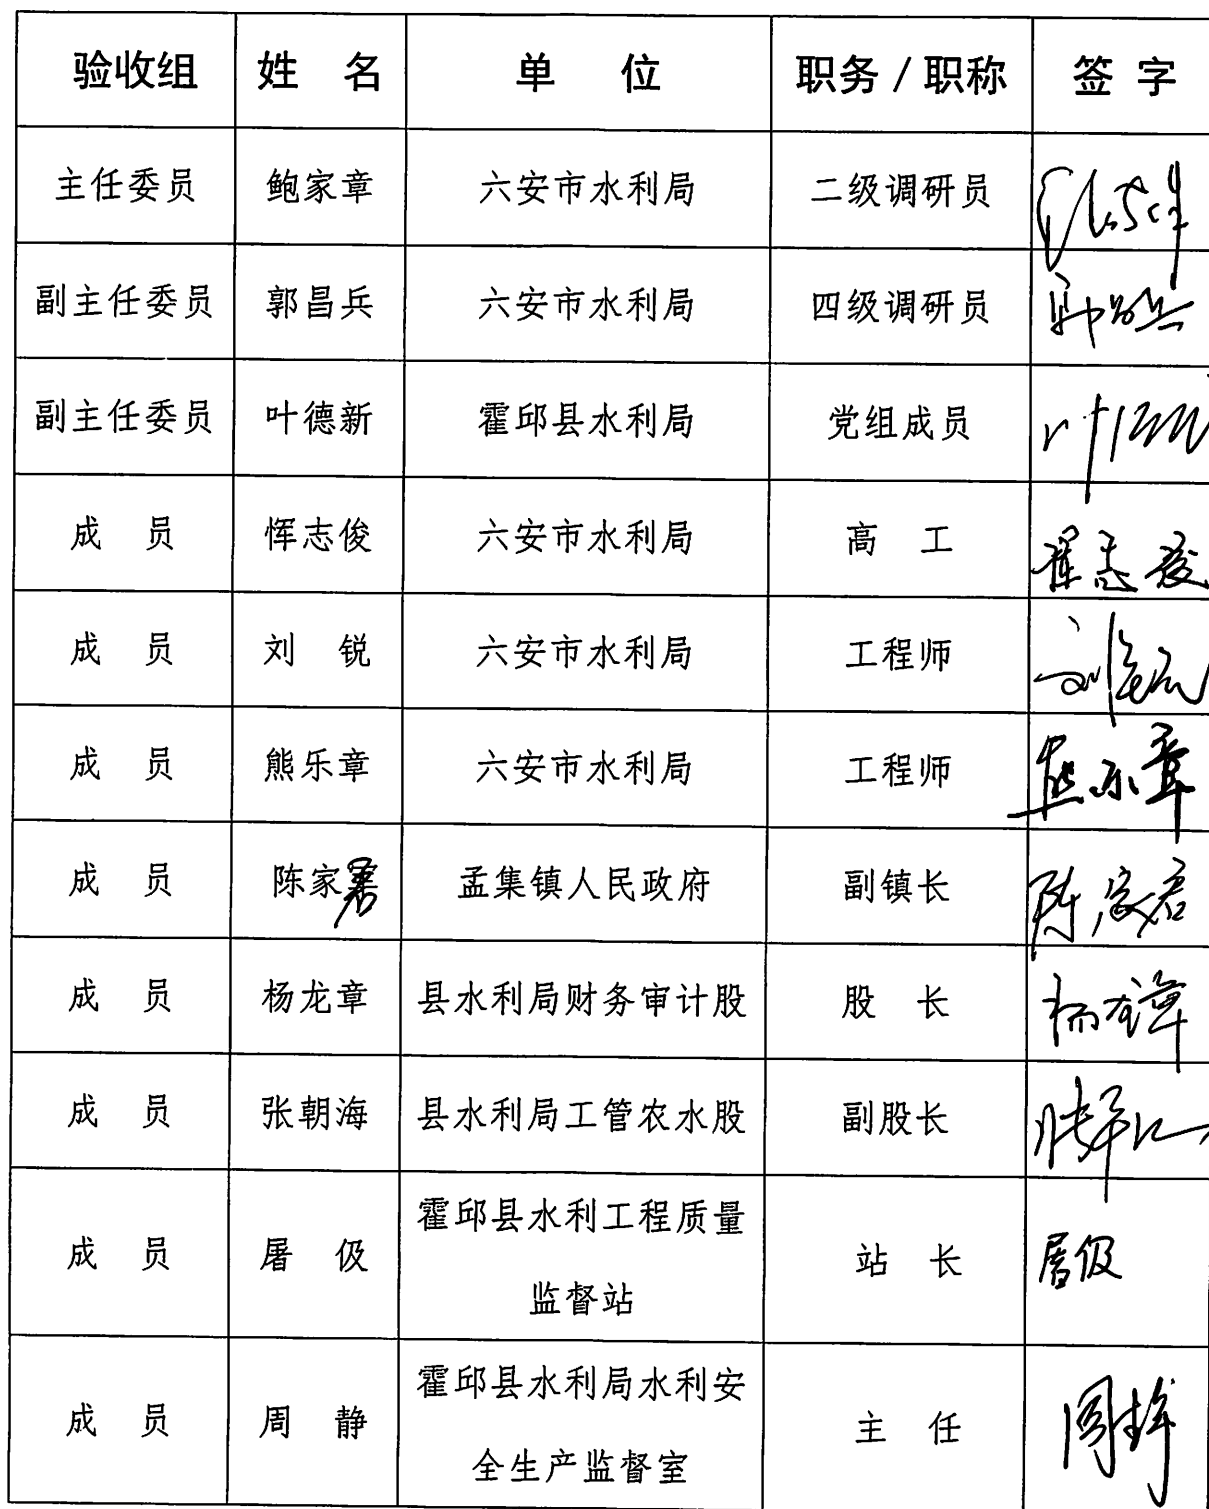 验收组 姓 名 单 位 职务 / 职称 签 字
主任委员 鲍家章 六安市水利局 二级调研员
副主任委员 郭昌兵 六安市水利局 四级调研员 郭昌兵
副主任委员 叶德新 霍邱县水利局 党组成员 叶
成 员 恽志俊 六安市水利局 高 工 志俊
成 员 刘 锐 六安市水利局 工程师 刘锐
成 员 熊乐章 六安市水利局 工程师 熊乐章
成 员 陈家君 孟集镇人民政府 副镇长 陈家君
成 员 杨龙章 县水利局财务审计股 股 长 杨龙章
成 员 张朝海 县水利局工管农水股 副股长 张
成 员 屠 伋 霍邱县水利工程质量
监督站 站 长 屠伋
成 员 周 静 霍邱县水利局水利安
全生产监督室 主 任 周静